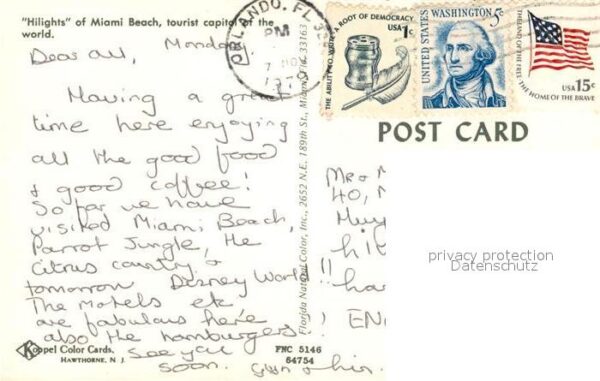 "Hilights" of Miami Beach, tourist capitol of the
world.
Dear all, Monday
Having a great
time here enjoying
all the good food
& good coffee!
So far we have
visited Miami Beach,
Parrot Jungle, the
Citrus country &
tomorrow Disney World!!
The Motels etc
are fabulous here
also the hamburgers!
See you
soon.
Koppel Color Cards,
HAWTHORNE, N. J.
FNC 5146
64754
Florida Natural Color, Inc., 2652 N.E. 189th St., Miami, Fla. 33163
ORLANDO, FL 32
PM
7 NOV
197
THE ABILITY TO WRITE
A ROOT OF DEMOCRACY
USA 1c
UNITED STATES
WASHINGTON 5c
THE LAND OF THE FREE
THE HOME OF THE BRAVE
USA 15c
POST CARD
Mr &
40,
ENG
privacy protection
Datenschutz